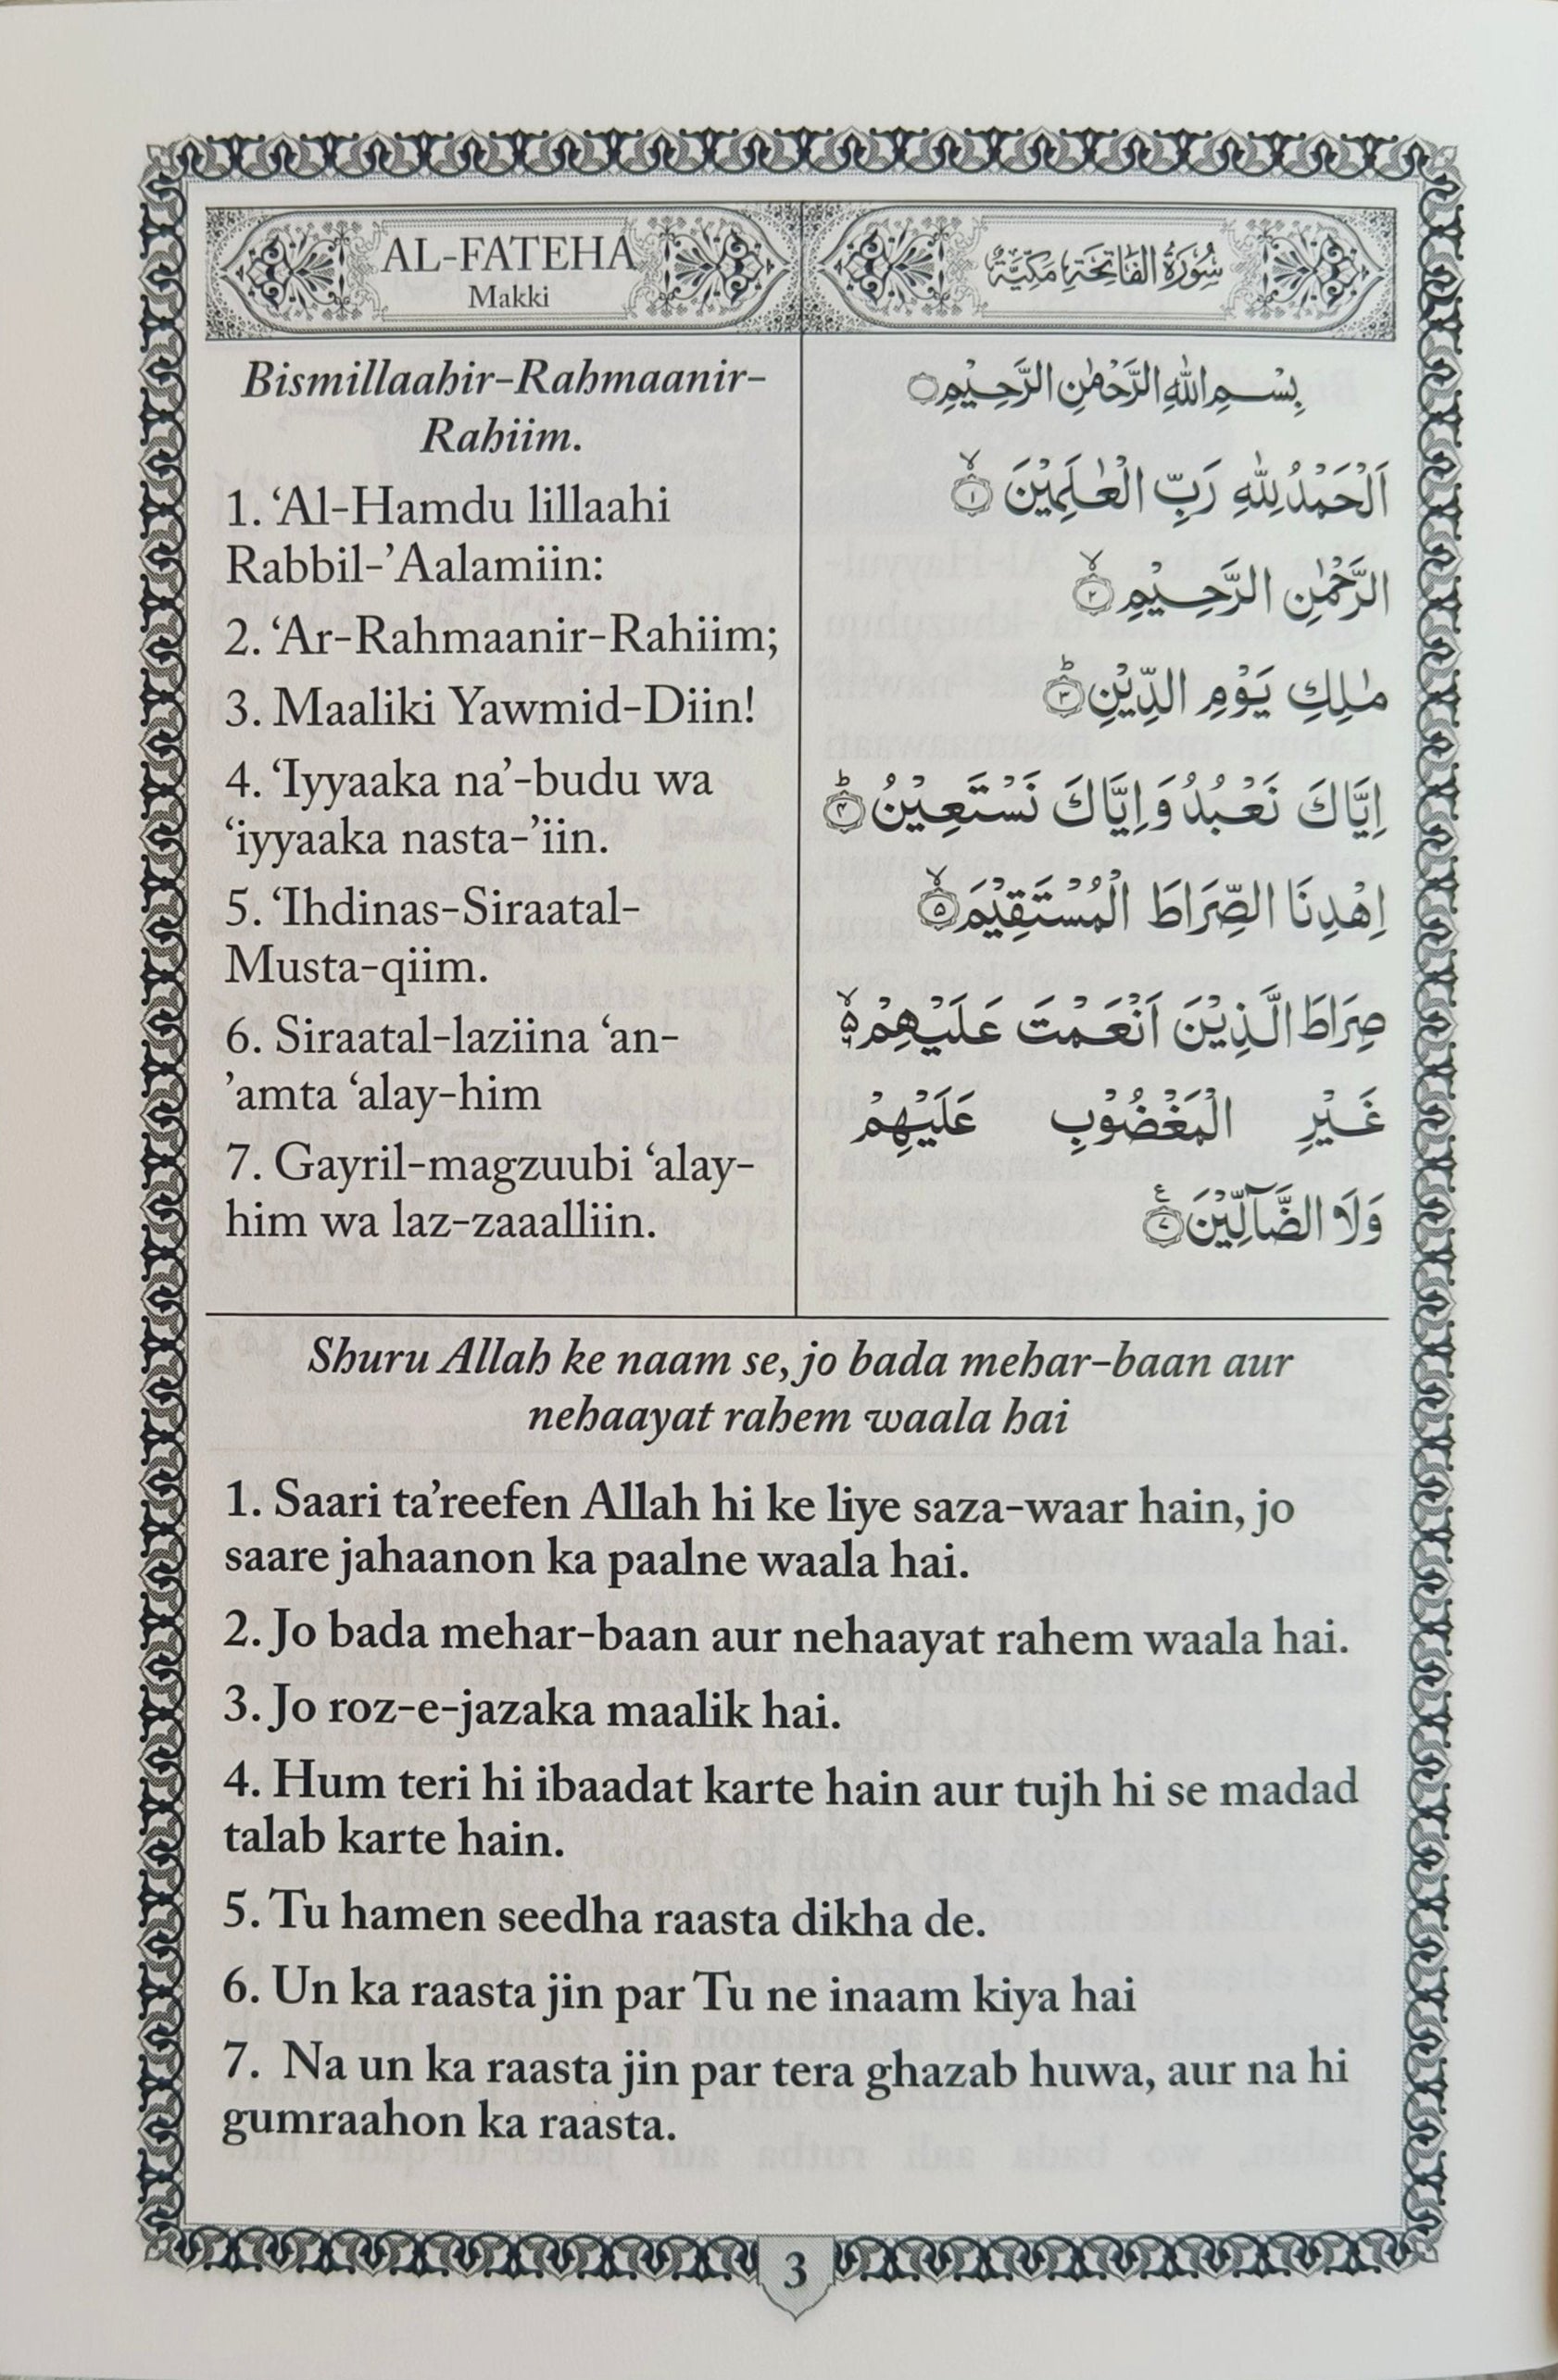 AL-FATEHA
Makki
Bismillaahir-Rahmaanir-
Rahiim.
1. ‘Al-Hamdu lillaahi
Rabbil-’Aalamiin:
2. ‘Ar-Rahmaanir-Rahiim;
3. Maaliki Yawmid-Diin!
4. ‘Iyyaaka na’-budu wa
‘iyyaaka nasta-’iin.
5. ‘Ihdinas-Siraatal-
Musta-qiim.
6. Siraatal-laziina ‘an-
’amta ‘alay-him
7. Gayril-magzuubi ‘alay-
him wa laz-zaaalliin.
سُوْرَةُ الْفَاتِحَةِ مَكِّيَّةٌ
بِسْمِ اللّٰهِ الرَّحْمٰنِ الرَّحِيْمِ ۝
اَلْحَمْدُ لِلّٰهِ رَبِّ الْعٰلَمِيْنَ ۙ﴿۱﴾
الرَّحْمٰنِ الرَّحِيْمِ ۙ﴿۲﴾
مٰلِكِ يَوْمِ الدِّيْنِ ؕ﴿۳﴾
اِيَّاكَ نَعْبُدُ وَ اِيَّاكَ نَسْتَعِيْنُ ؕ﴿۴﴾
اِهْدِنَا الصِّرَاطَ الْمُسْتَقِيْمَ ۙ﴿۵﴾
صِرَاطَ الَّذِيْنَ اَنْعَمْتَ عَلَيْهِمْ ۙ۬
غَيْرِ الْمَغْضُوْبِ عَلَيْهِمْ
وَلَا الضَّآلِّيْنَ ﴿۷﴾ ع
Shuru Allah ke naam se, jo bada mehar-baan aur
nehaayat rahem waala hai
1. Saari ta’reefen Allah hi ke liye saza-waar hain, jo
saare jahaanon ka paalne waala hai.
2. Jo bada mehar-baan aur nehaayat rahem waala hai.
3. Jo roz-e-jazaka maalik hai.
4. Hum teri hi ibaadat karte hain aur tujh hi se madad
talab karte hain.
5. Tu hamen seedha raasta dikha de.
6. Un ka raasta jin par Tu ne inaam kiya hai
7. Na un ka raasta jin par tera ghazab huwa, aur na hi
gumraahon ka raasta.
3